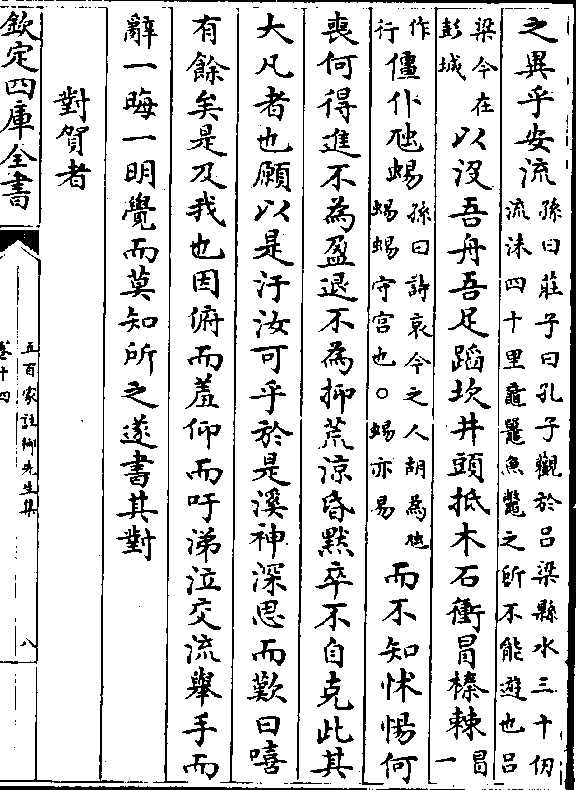 之異乎安流孫曰莊子曰孔子觀於呂梁縣水三十仞流沫四十里黿鼉魚鱉之所不能遊也呂
梁今在彭城以沒吾舟吾足蹈坎井頭抵木石衝冒榛棘冒一
作行僵仆虺蜴孫曰詩哀今之人胡為虺蜴蜴守宮也○蜴亦易而不知怵惕何
喪何得進不為盈退不為抑荒涼昏默卒不自克此其
大凡者也願以是汙汝可乎於是溪神深思而歎曰嘻
有餘矣是及我也因俯而羞仰而吁涕泣交流舉手而
辭一晦一明覺而莫知所之遂書其對
對賀者
欽定四庫全書
五百家註柳先生集
卷十四
八